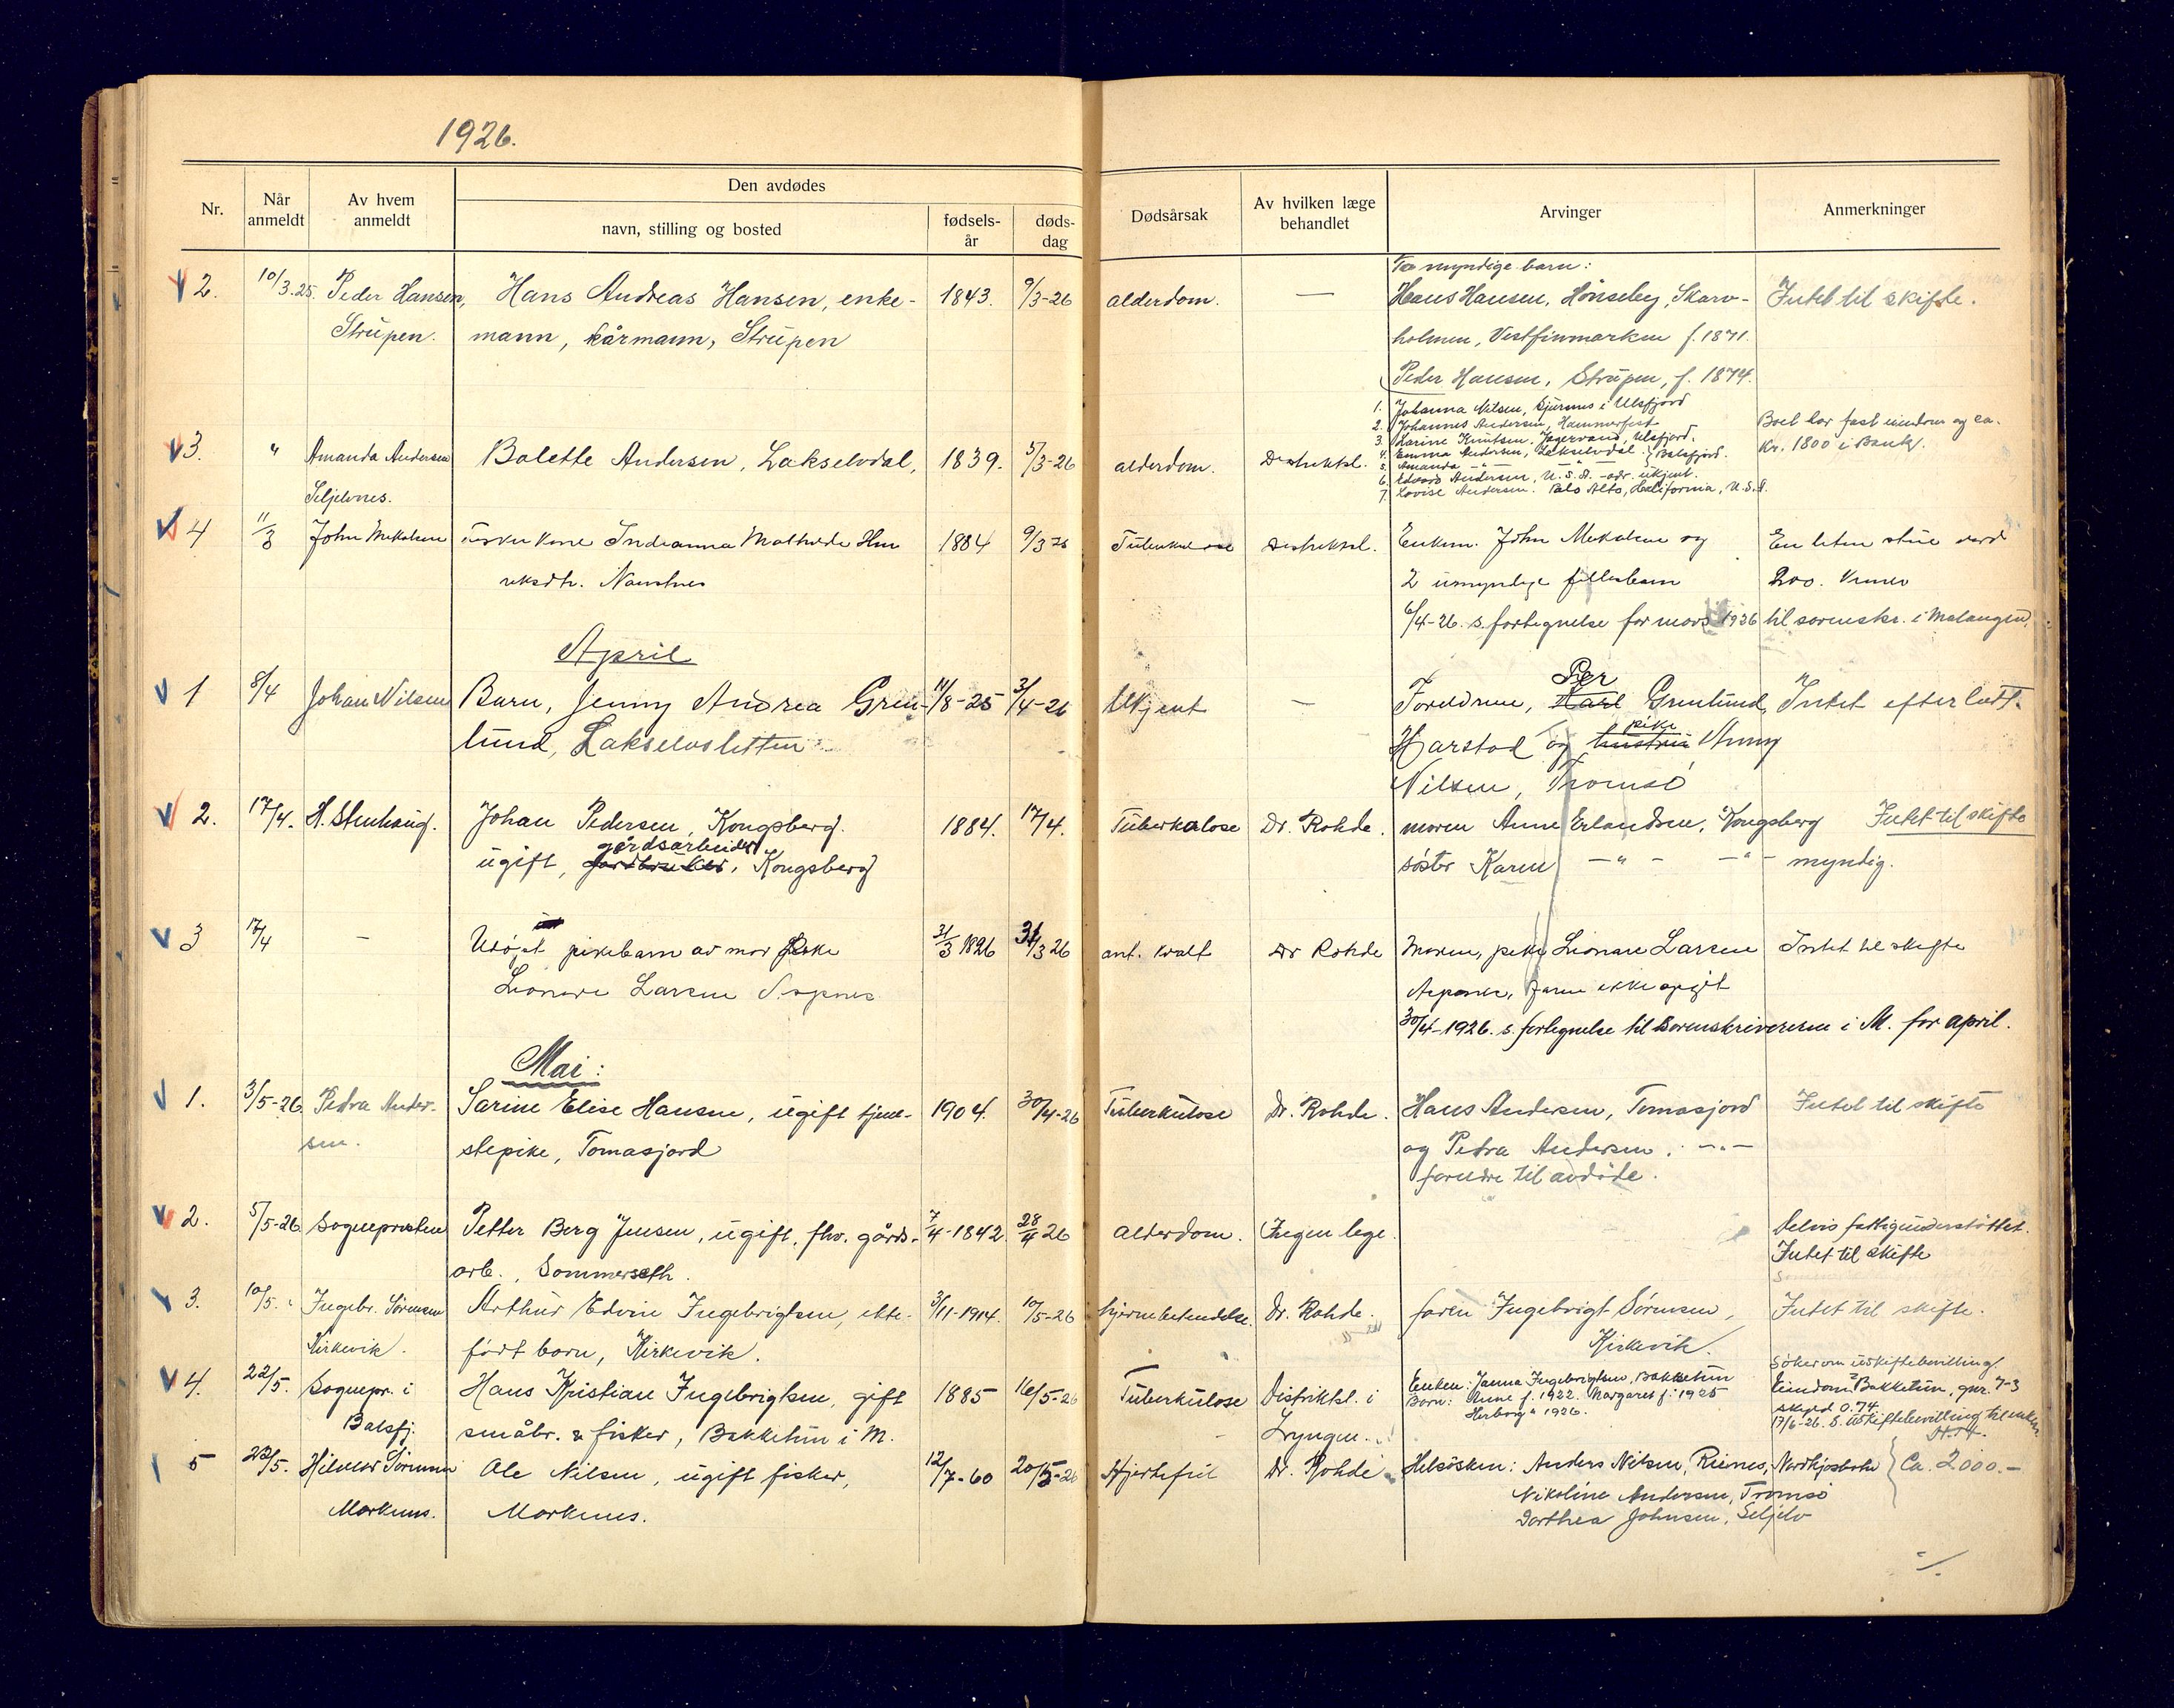 1926.
Nr.
Når anmeldt
Av hvem anmeldt
Den avdødes
navn, stilling og bosted
fødsels-år
døds-dag
Dødsårsak
Av hvilken læge behandlet
Arvinger
Anmerkninger
2. 10/3.25. Peder Hansen, Hans Andreas Hansen, enke- 1843. 9/3-26 alderdom. —
Strupen. mann, kårmann, Strupen
To myndige barn:
Hans Hansen, Hønseby, Skarv- Intet til skifte.
holmen, Vestfinmarken f. 1871.
Peder Hansen, Strupen, f. 1874.
3. " Amanda Andersen Bolette Andersen, Lakselvdal, 1839. 5/3-26 alderdom. Distriktsl.
Seljelvnes.
1. Johanna Nilsen, Sjursnes i Ulsfjord
2. Johannes Andersen, Hammerfest
3. Karine Knutsen, Jægervand, Ulsfjord.
4. Emma Andersen, Lakselvdal } Balsfjord.
5. Amanda — " —
6. Edvard Andersen, U.S.A. - adr. ukjent.
7. Lovise Andersen. Palo Alto, California, U.S.A.
Boet har fast eiendom og ca.
kr. 1800 i Bank.
4 11/3 John Mikalsen kone Indianna Mathilde Hen 1884 9/3 26 Tuberkulose Distriktsl.
riksdtr. Naustnes
Enkem. John Mikalsen og En liten stue verd
2 umyndige fellesbarn 200. kroner
6/4-26. s. fortegnelse for mars 1926 til sorenskr. i Malangen.
April
1 8/4 Johan Nilsen Barn, Jenny Andrea Gren- 11/8-25 3/4-26 Ukjent —
lund, Lakselvsletten
Foreldrene, Karl Per Grenlund, Intet efterladt.
Harstad og hustru pike Anny
Nilsen, Tromsø
2. 17/4. H. Stenhaug. Johan Pedersen, Kongsberg. 1884. 17/4. Tuberkulose Dr. Rohde.
ugift, jordbruker gårdsarbeider, Kongsberg
moren Anne Erlandsen, Kongsberg Intet til skifte
søster Karen — " — — " — myndig.
3 17/4 — Udøpt pikebarn av mor pike 31/3 1826 31/3 26 ant. kvalt Dr Rohde
Leonare Larsen
Moren, pike Leonare Larsen Intet til skifte
faren ikke opgit
30/4-1926. s. fortegnelse til Sorenskriveren i M. for april.
Mai:
1. 3/5-26 Petra Ander- Sarine Elise Hansen, ugift tjene- 1904. 30/4-26 Tuberkulose Dr. Rohde.
sen. stepike, Tomasjord
Hans Andersen, Tomasjord Intet til skifte
og Petra Andersen, — " —
foreldre til avdøde.
2. 5/5-26 Sognepresten Petter Berg Jensen, ugift, fhv. gårds- 7/4-1842 28/4 26 Alderdom. Ingen lege.
arb., Sommerseth.
Delvis fattigunderstøttet.
Intet til skifte
3. 10/5. Ingebr. Sørensen Arthur Edvin Ingebrigtsen, ekte- 3/11-1914. 10/5-26 hjernebetendelse. Dr. Rohde.
Kirkevik. født barn, Kirkevik.
faren Ingebrigt Sørensen, Intet til skifte.
Kirkevik.
4. 22/5. Sognepr. i Hans Kristian Ingebrigtsen, gift 1885 16/5-26 Tuberkulose Distriktsl. i
Balsfj. småbr. & fisker, Bakketun i M. Lyngen.
Enken: Janna Ingebrigtsen, Bakketun
Barn: Rune f. 1922. Margaret f. 1925
Herborg " 1926.
Søker om uskiftebevilling.
Eiendom Bakketun, gnr. 7-3
skyld 0.74.
17/6-26. S. uskiftebevilling til enken
5 22/5. Hilmar Sørensen Ole Nilsen, ugift fisker, 12/7-60 20/5-26 Hjertefeil Dr. Rohde
Markenes. Markenes.
Helsøsken: Anders Nilsen, Reines, Nordkjosbotn } Ca. 2000.—
Nikoline Andersen, Tromsø
Dorthea Johnsen, Seljelv